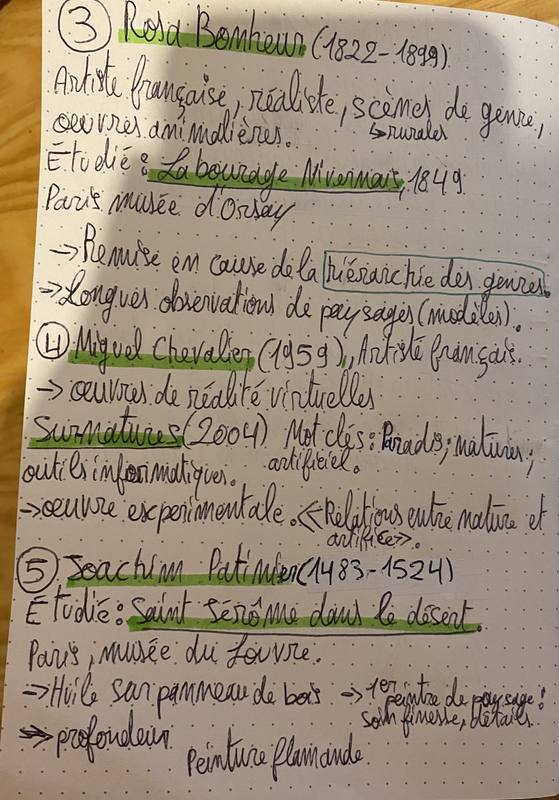 ③ Rosa Bonheur (1822-1899)
Artiste française, réaliste, scènes de genre,
↳rurales
oeuvres animalières.
Étudié : Labourage Nivernais, 1849
Paris musée d'Orsay
→ Remise en cause de la hiérarchie des genres.
→ Longues observations de paysages (modèles).
④ Miguel Chevalier (1959), Artiste français.
→ oeuvres de réalité virtuelles
Surnatures (2004) Mot clés : Paradis ; natures ;
artificiel.
outils informatiques.
→ oeuvre experimentale. «Relations entre nature et
artifice».
⑤ Joachim Patinier (1483-1524)
Étudié : Saint Jérôme dans le désert.
Paris, musée du Louvre.
→ Huile sur panneau de bois → 1er
peintre de paysage :
soin finesse, détails
→ profondeur
Peinture flamande.